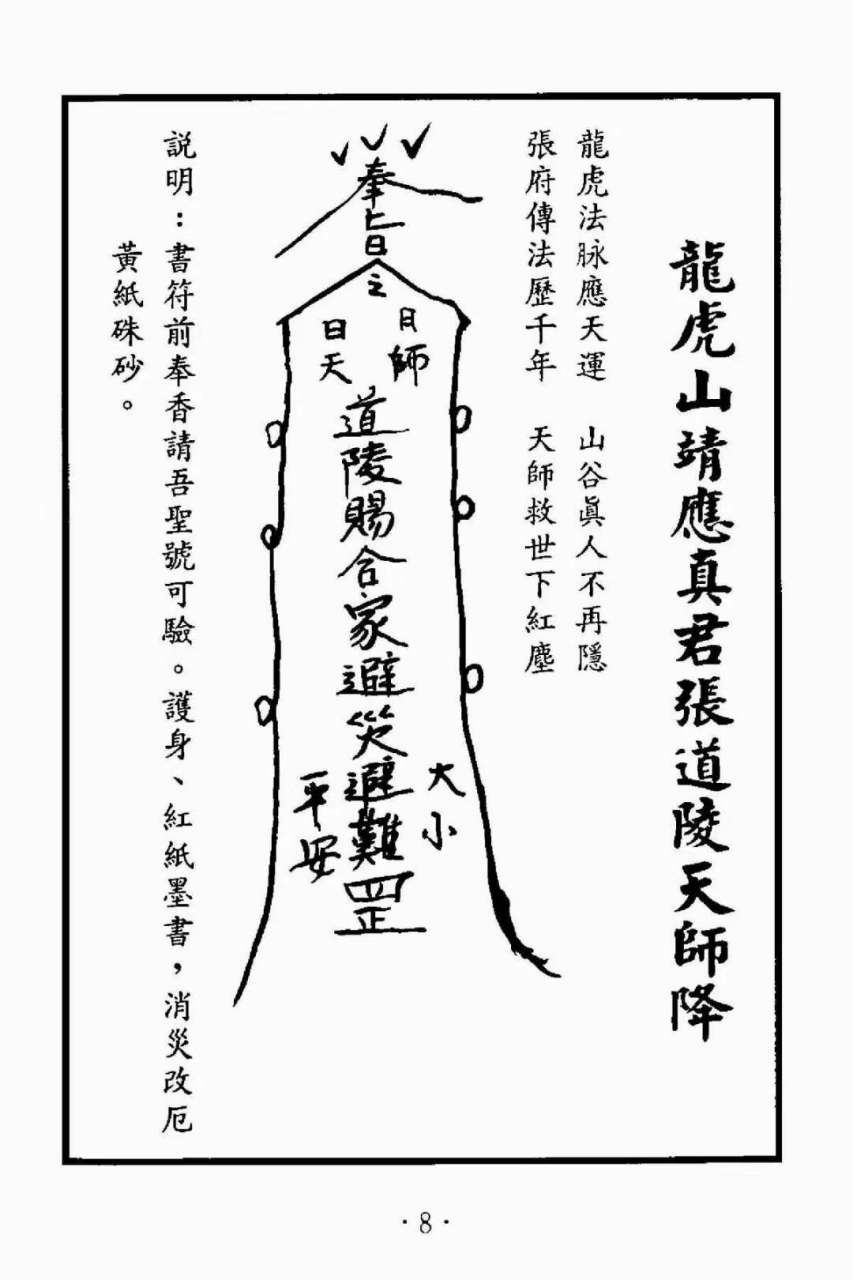 龍虎山靖應真君張道陵天師降
龍虎法脉應天運　山谷眞人不再隱
張府傳法歷千年　天師救世下紅塵
奉旨
之
日 月
天 師
道陵賜合家避災避難罡
大小
平安
説明：書符前奉香請吾聖號可驗。護身、紅紙墨書，消災改厄
黃紙硃砂。
· 8 ·